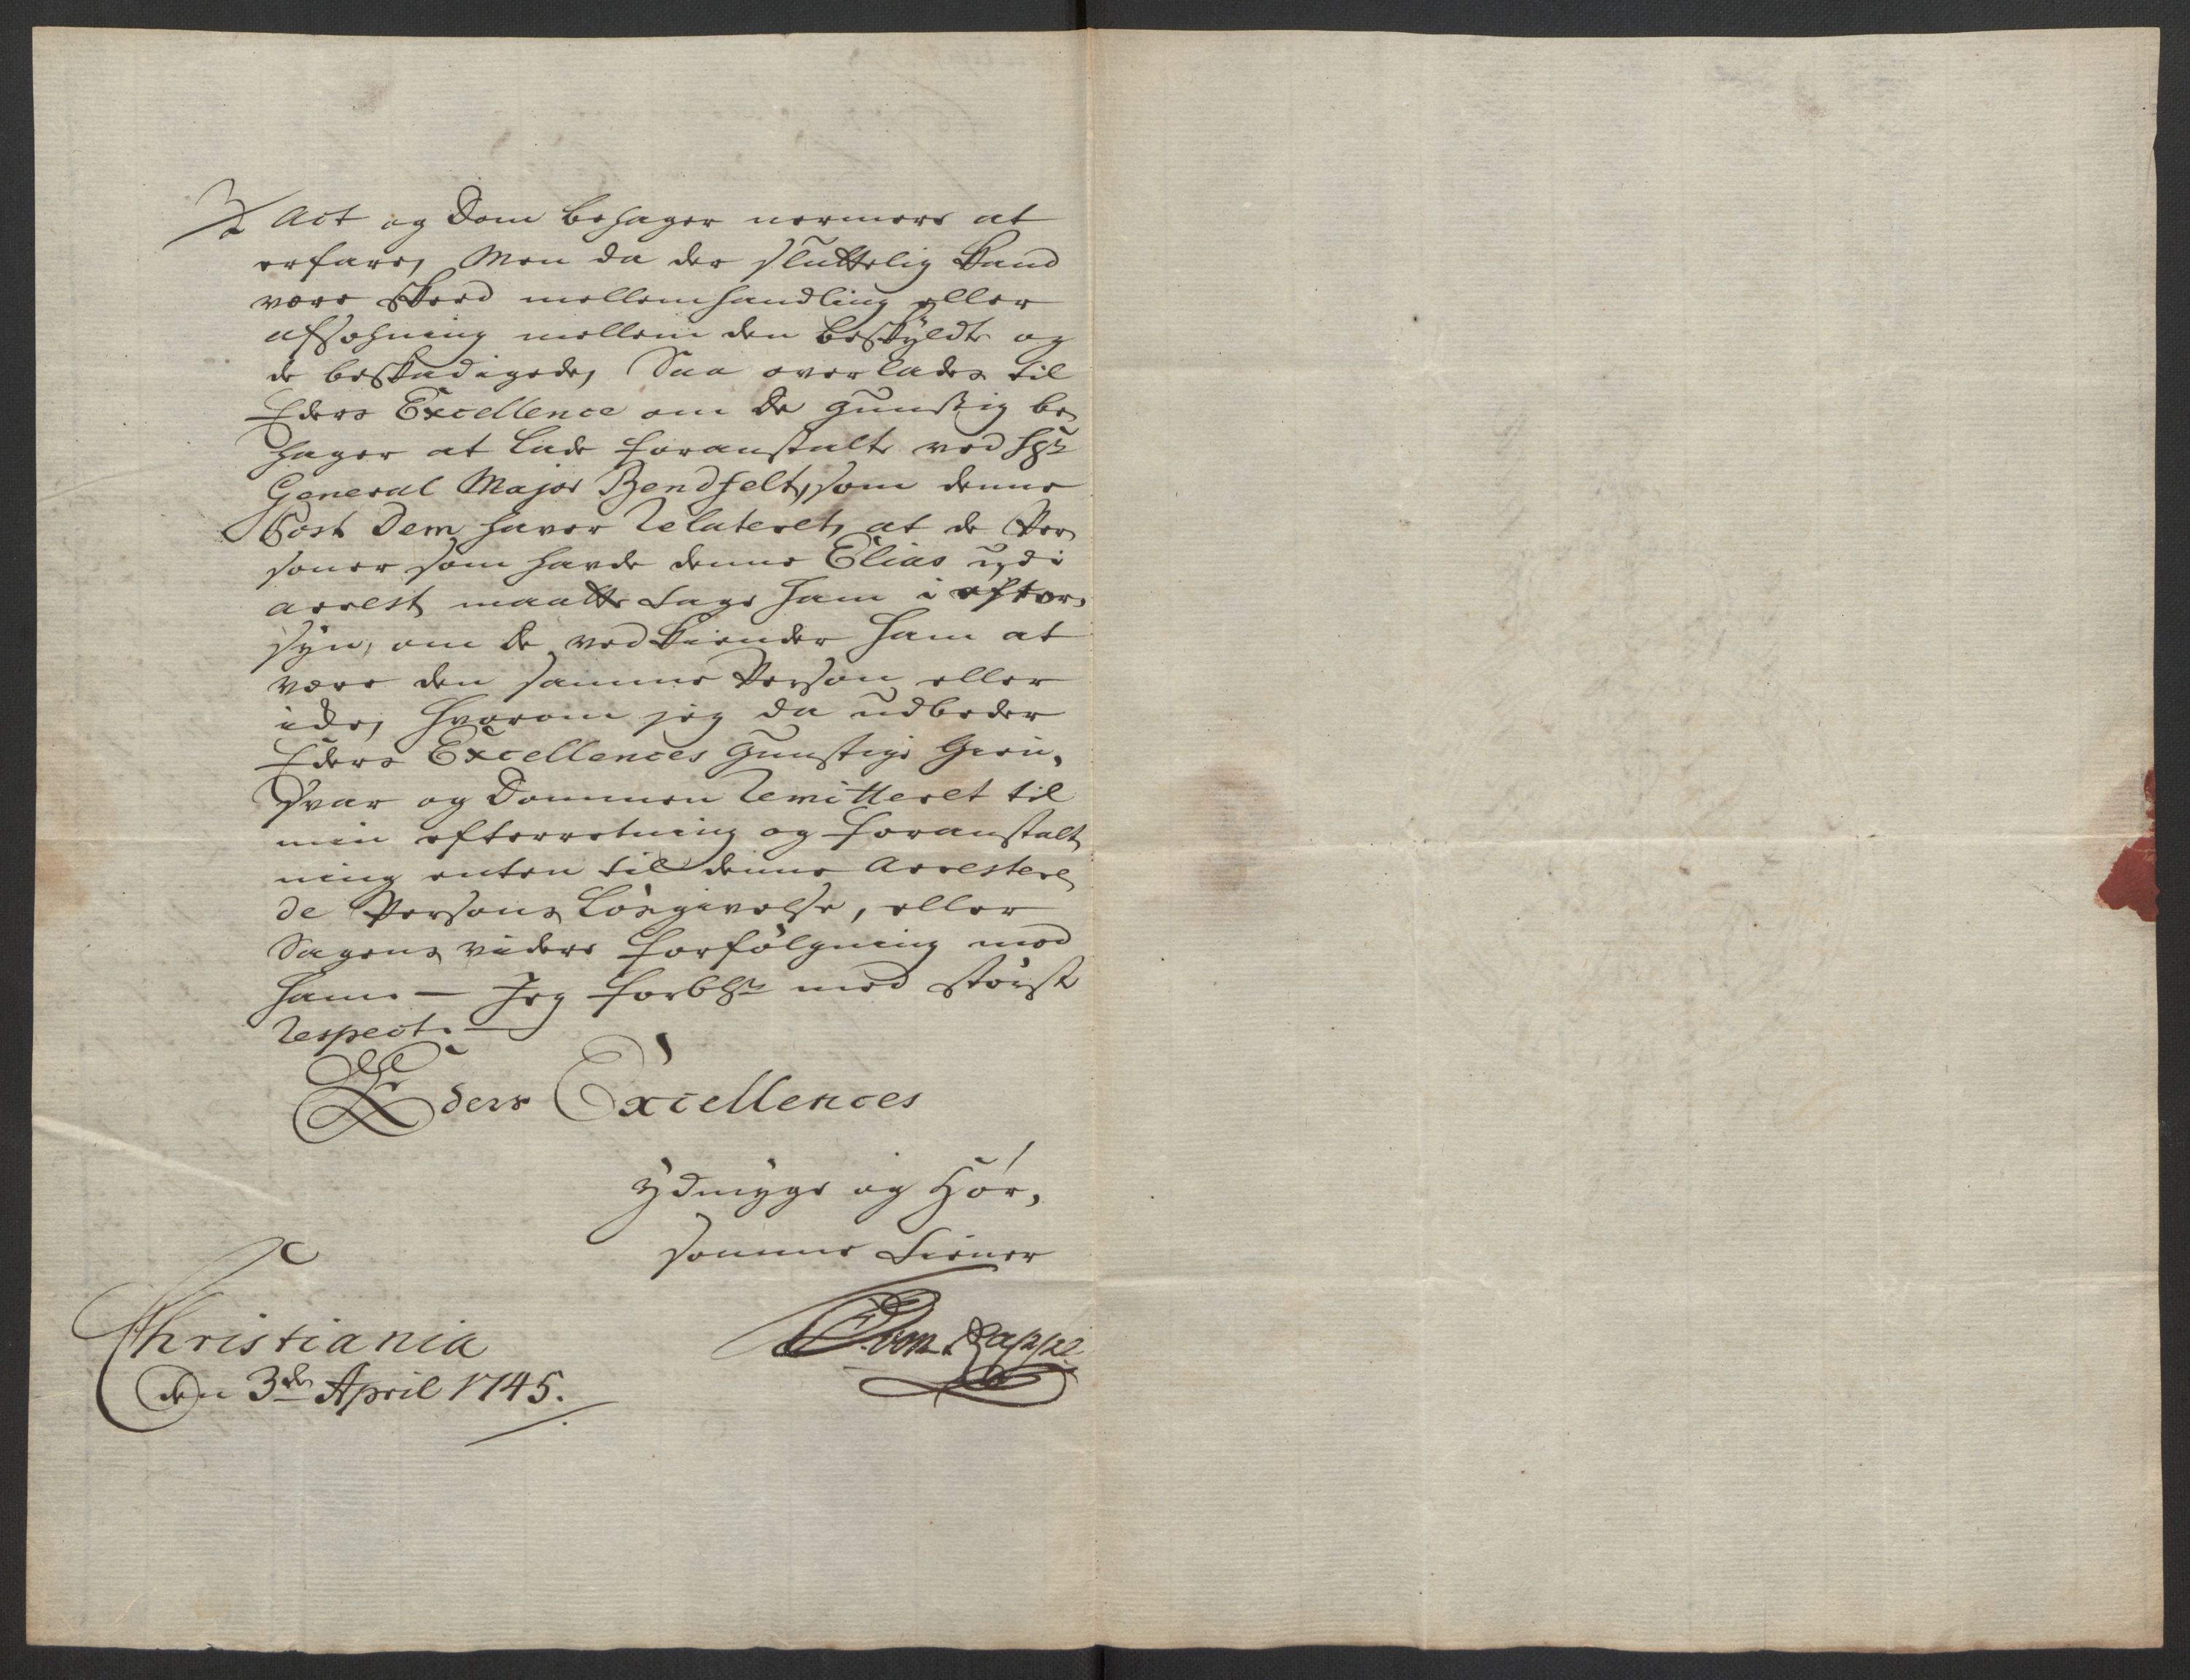 Act og Dom behager nermere at
erfare, Men da der sluttelig kand
være skeed mellemhandling eller
afsohning mellem den beskyldte og
de beskadigede, Saa overlades til
Eders Excellence om De gunstig be
hager at lade foranstalte ved Hr
General Major Bendfelt, som denne
Post Dem haver Relateret, at de Per
soner som havde denne Elias udi
arrest, maatte tage ham i efter,
syn, om de vedkiender ham at
være den samme Person eller
icke, hvorom jeg da udbeder
Eders Excellences gunstige Gien,
svar og Dommen Remitteret til
min efterretning og foranstalt
ning enten til denne Arrestere
de Persons Løsgivelse, eller
Sagens videre forfølgning mod
ham. — Jeg forblr med størst
Respect. —
Eders Excellences
ydmyge og Hør,
somme Tiener
von Rappe
Christiania
den 3de April 1745.